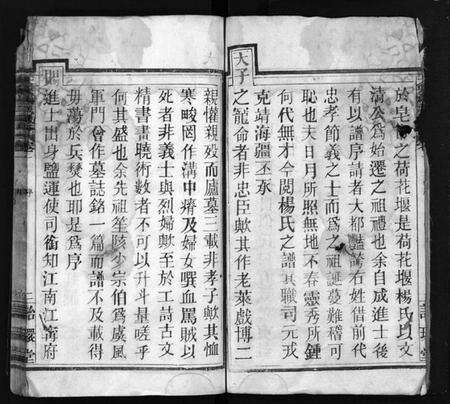 於皂  之荷花堰是荷花堰楊氏以文
清公為始遷之祖禮也余自成進士後
有以譜序請者大都豔    右姓借前代
忠孝節義之士而為之祖誕蔓難稽可
恥也夫日月所照無地不春靈秀所鍾
何代無才今閱楊氏之譜其職司元戎
克靖海疆丕承
天子
之寵命者非忠臣歟其作老萊戲博二
親懽親歿而廬墓三載非孝子歟其恤
寒畯罔作溝中瘠及婦女噀血罵賊以
死者非義士與烈婦歟至於工詩古文
精書畫曉術數者不可以升斗量嗟乎
何其盛也余先祖笙陔少宗伯為虞風
軍門曾作墓誌銘一篇而譜不及載得
毋蕩於兵燹也耶是為序
進士出身鹽運使司銜知江南江寧府
序
三治
堂